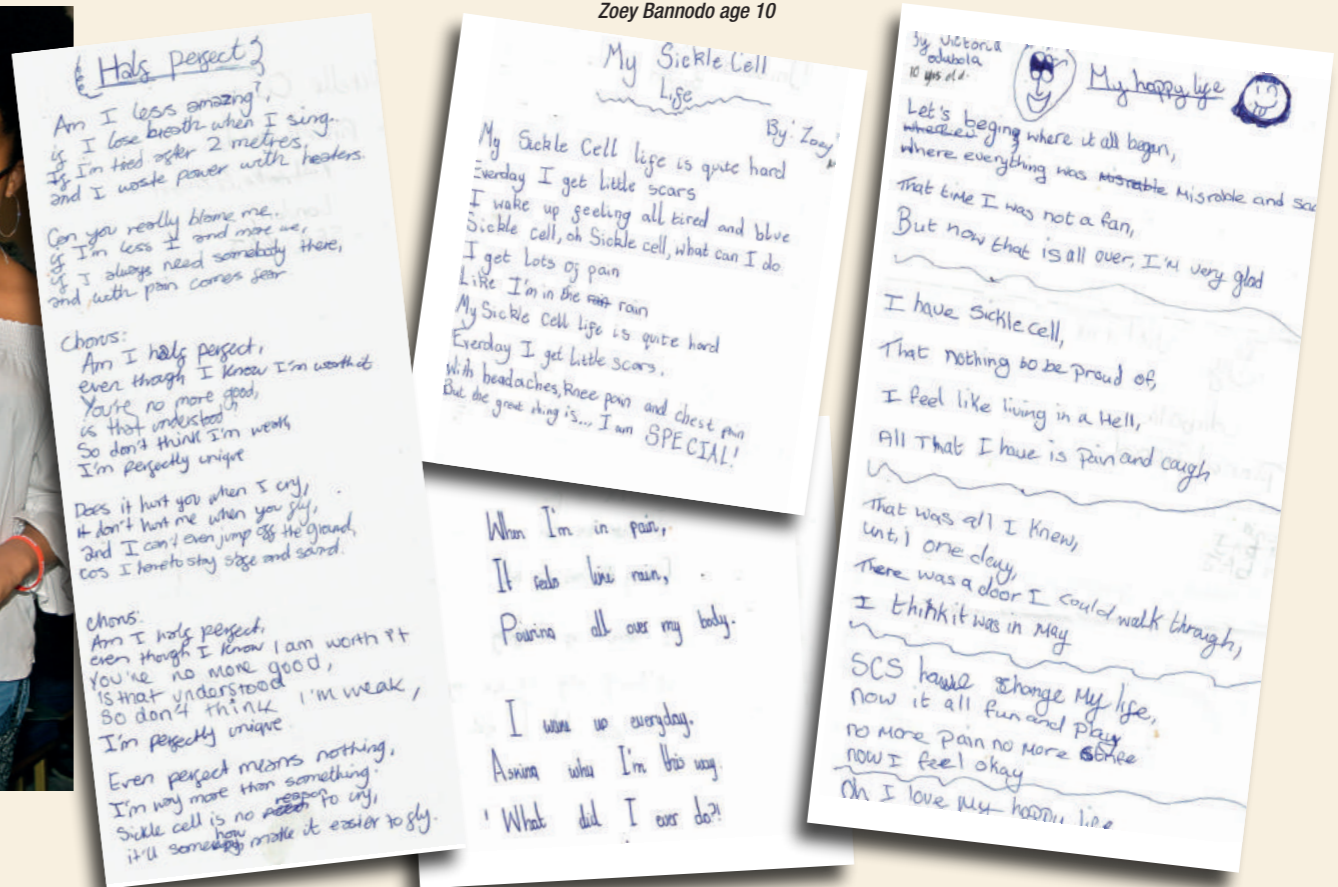 Zoey Bannodo age 10
Half perfect
Am I less amazing?,
if I lose breath when I sing.
If I'm tied after 2 metres,
and I waste power with heaters.
Can you really blame me.
if I'm less I and more we,
if I always need somebody there,
and with pain comes fear
Chorus:
Am I half perfect,
even though I know I'm worth it
You're no more good,
is that understood
So don't think I'm weak
I'm perfectly unique
Does it hurt you when I cry,
it don't hurt me when you fly,
and I can't even jump off the ground,
cos I have to stay safe and sound.
chorus:
Am I half perfect,
even though I know I am worth it
You're no more good,
is that understood
So don't think I'm weak,
I'm perfectly unique
Even perfect means nothing,
I'm way more than something.
Sickle cell is no reason to cry,
it'll somehow make it easier to fly.
My Sickle Cell
Life
By: Zoey
My Sickle Cell life is quite hard
Everday I get little scars
I wake up feeling all tired and blue
Sickle cell, oh Sickle cell, what can I do
I get lots of pain
Like I'm in the rain
My Sickle Cell life is quite hard
Everday I get little scars.
With headaches, knee pain and chest pain
But the great thing is... I am SPECIAL!
When I'm in pain,
It feels like rain,
Pouring all over my body.
I wake up everyday.
Asking why I'm this way.
'What did I ever do?!
By Victoria
odubola
10 yrs old.
My happy life
Let's beging where it all began,
where everything was Misrable and sad
That time I was not a fan,
But now that is all over, I'M very glad
I have Sickle cell,
That nothing to be proud of,
I feel like living in a Hell,
All That I have is Pain and cough
That was all I knew,
until one day,
There was a door I could walk through,
I think it was in May
SCS change My life,
now it all fun and Play
no More Pain no More
now I feel okay
Oh I love My happy life